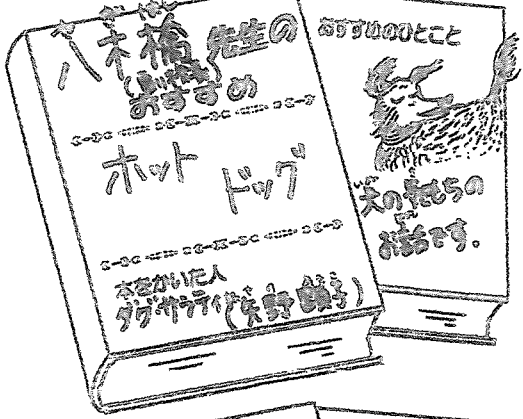 八木橋先生の
おすすめ
ホット
ドッグ
本をかいた人
ダグ・サラティ(矢野顕子)
おすすめのひとこと
犬の気もちの
お話です。